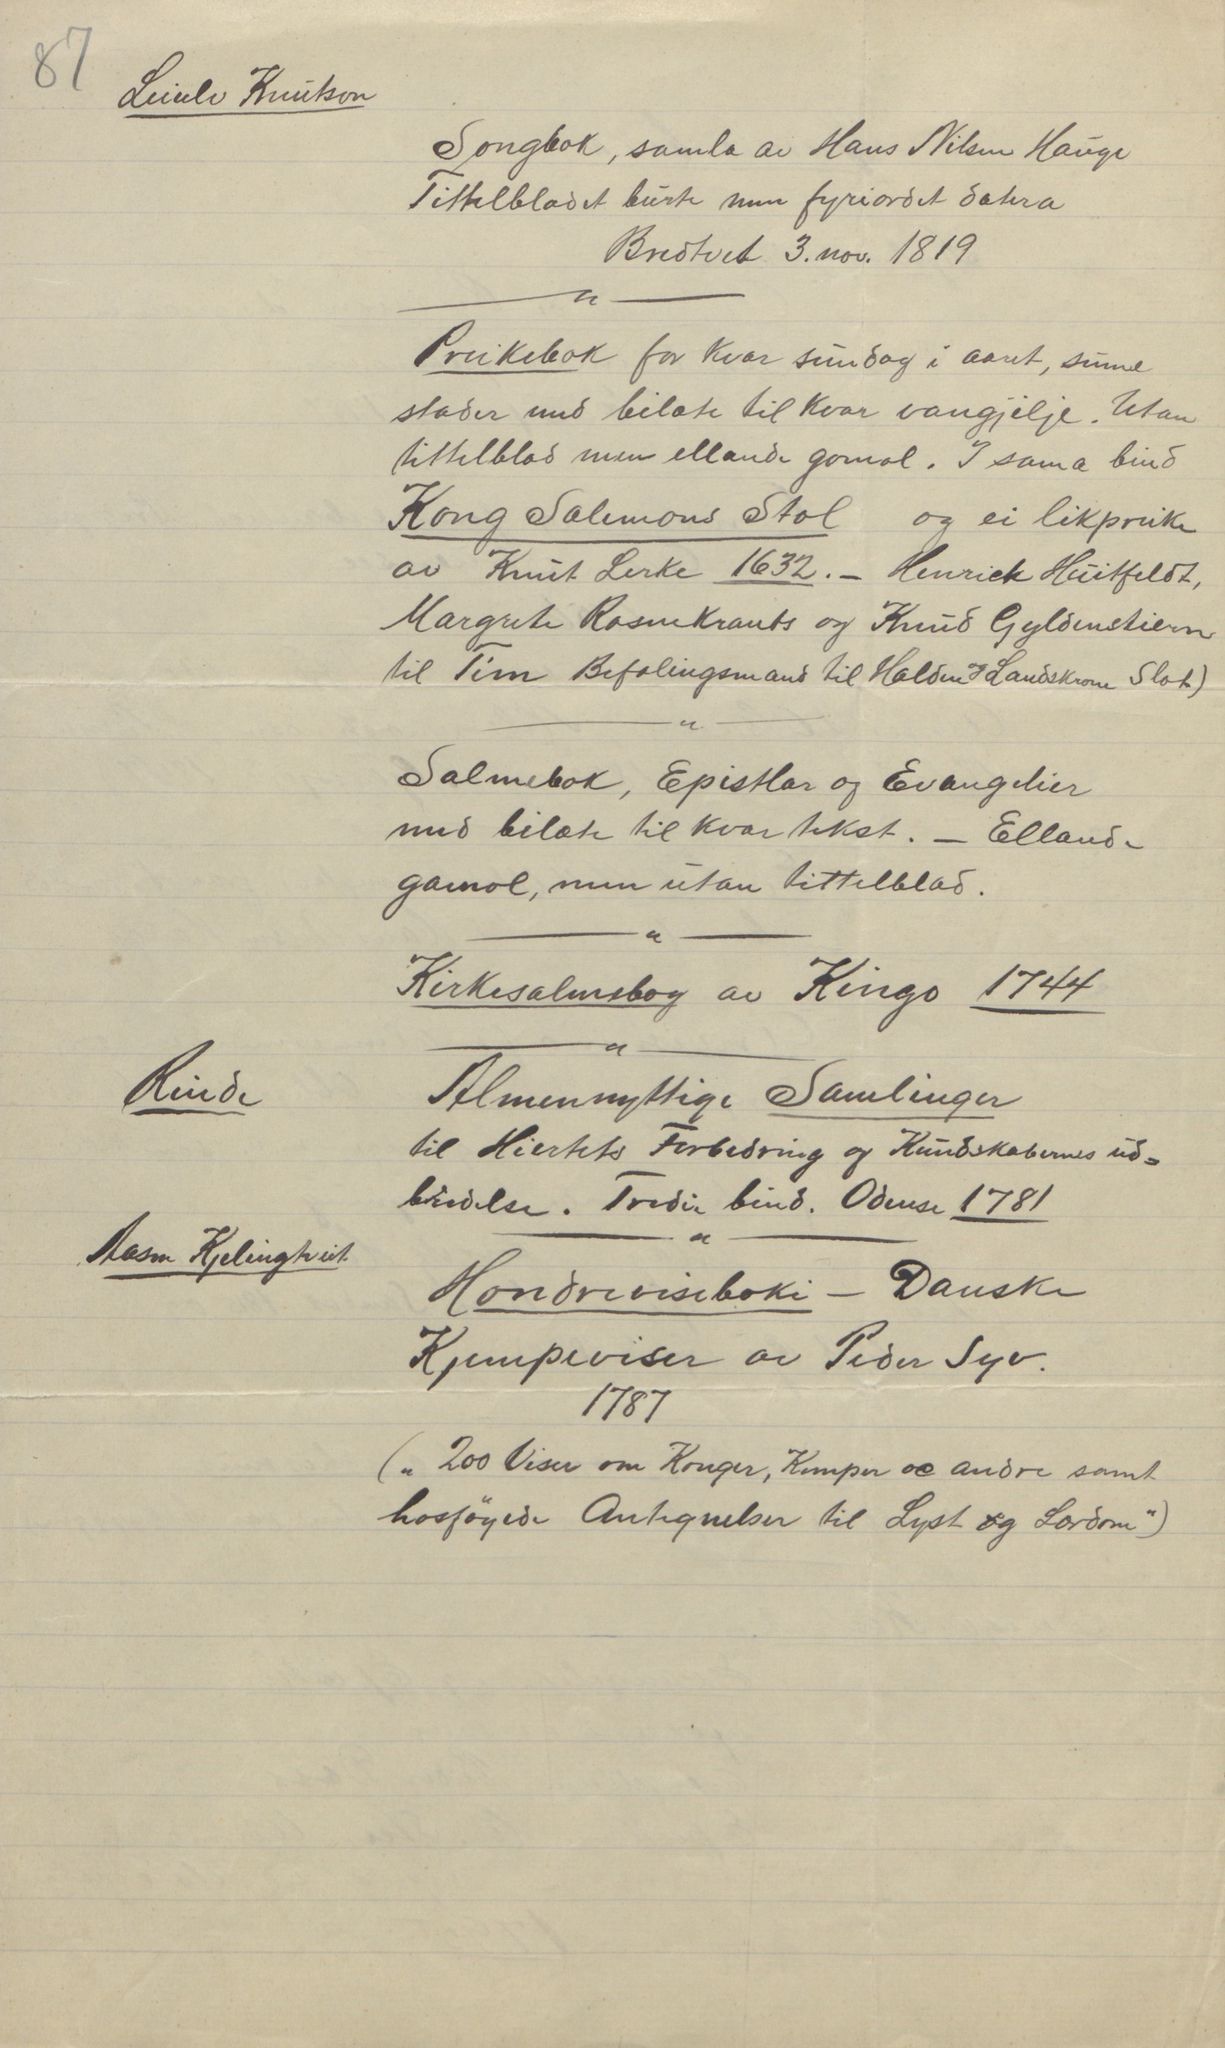 87
Leiulv Knutson
Songbok, samla av Hans Nilsen Hauge
Tittelbladet burte men fyriordet datera
Bredtvet 3. nov. 1819
"
Preikebok for kvar sundag i aaret, sume
stader med bilæte til kvar vangjelje. Utan
tittelblad men ellande gomol. I sama bind
Kong Salemons Stol og ei likpreike
av Knut Lerke 1632. – Henrick Huitfeldt,
Margrete Rosenkrants og Knud Gyldenstiern
til Tim Befalingsmand til Halden og Landskrone Slot)
"
Salmebok, Epistlar og Evangelier
med bilæte til kvar tekst. – Ellande
gamol, men utan tittelblad.
"
Kirkesalmebog av Kingo 1744
"
Rinde
Almennyttige Samlinger
til Hiertets Forbedring og Kundskabernes ud=
bredelse. Tredie bind. Odense 1781
"
Aasne Kjelingtveit
Hondreviseboki – Danske
Kjempeviser av Peder Syv.
1787
(„ 200 Viser om Konger, Kemper oc andre samt
hosföyede Antegnelser til Lyst og Lærdom")